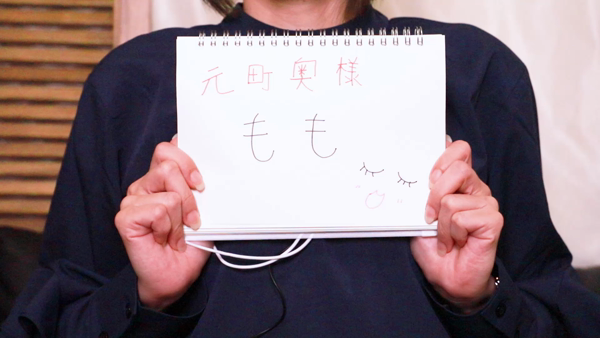 元町奥様
もも